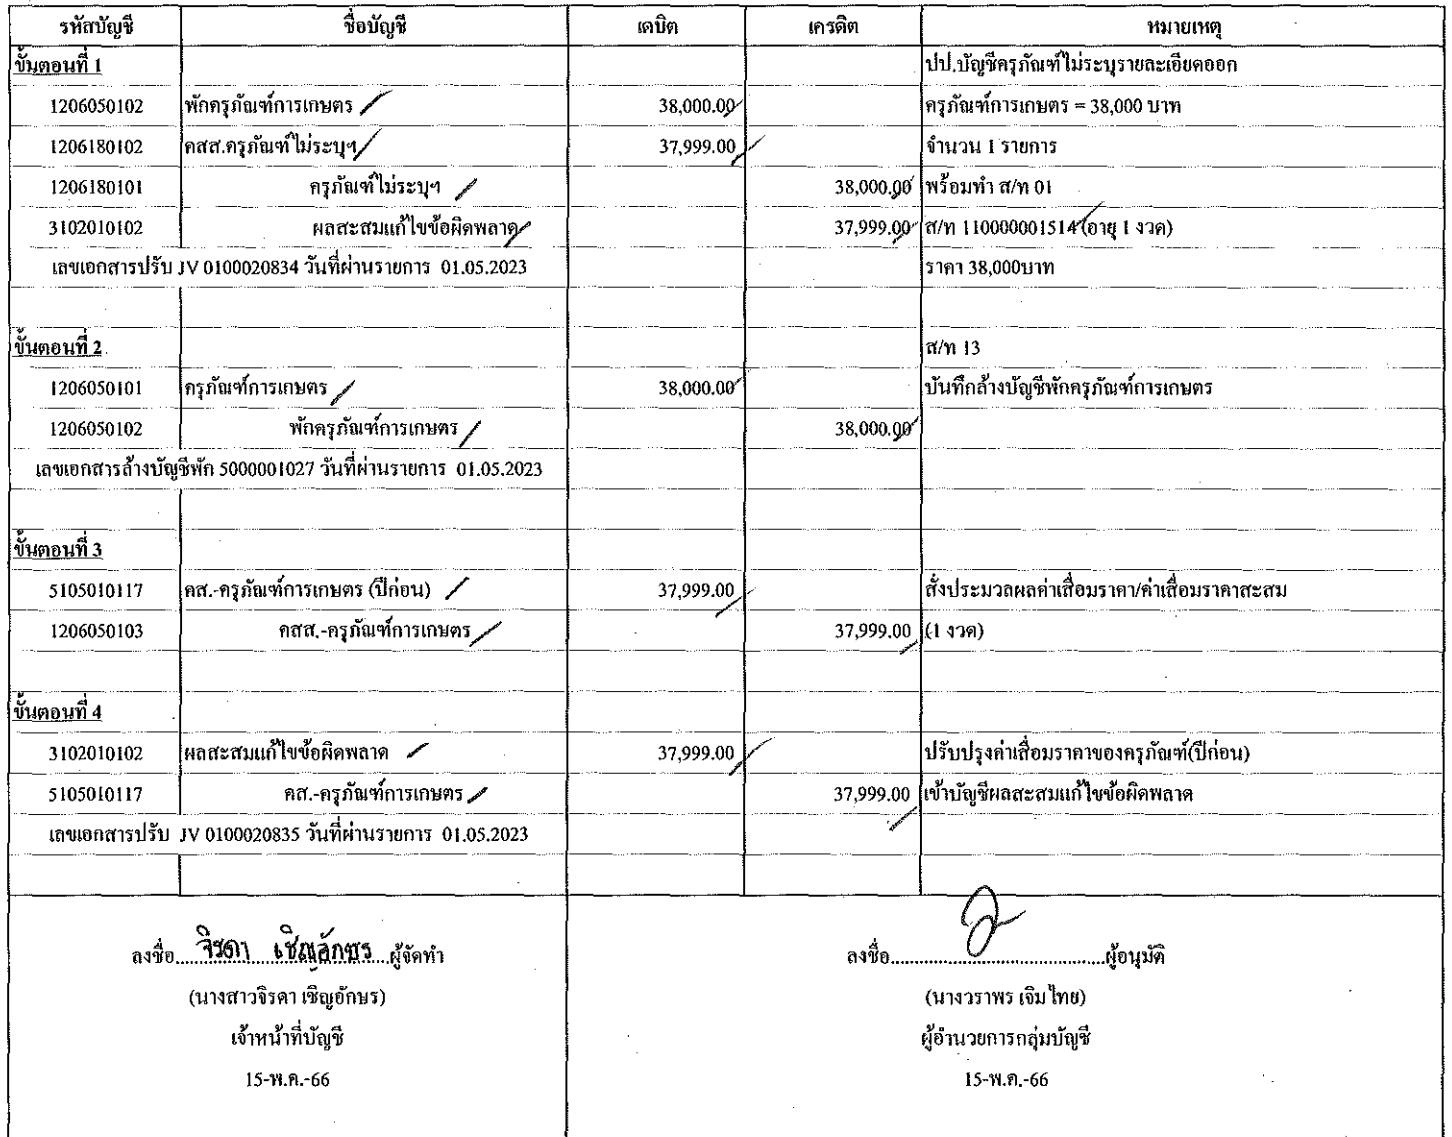 รหัสบัญชี ชื่อบัญชี เดบิต เครดิต หมายเหตุ
ขั้นตอนที่ 1 ปป.บัญชีครุภัณฑ์ไม่ระบุรายละเอียดออก
1206050102 พักครุภัณฑ์การเกษตร 38,000.00 ครุภัณฑ์การเกษตร = 38,000 บาท
1206180102 คสส.ครุภัณฑ์ไม่ระบุฯ 37,999.00 จำนวน 1 รายการ
1206180101 ครุภัณฑ์ไม่ระบุฯ 38,000.00 พร้อมทำ ส/ท 01
3102010102 ผลสะสมแก้ไขข้อผิดพลาด 37,999.00 ส/ท 110000001514 (อายุ 1 งวด)
เลขเอกสารปรับ JV 0100020834 วันที่ผ่านรายการ 01.05.2023 ราคา 38,000บาท
ขั้นตอนที่ 2 ส/ท 13
1206050101 ครุภัณฑ์การเกษตร 38,000.00 บันทึกล้างบัญชีพักครุภัณฑ์การเกษตร
1206050102 พักครุภัณฑ์การเกษตร 38,000.00
เลขเอกสารล้างบัญชีพัก 5000001027 วันที่ผ่านรายการ 01.05.2023
ขั้นตอนที่ 3
5105010117 คส.-ครุภัณฑ์การเกษตร (ปีก่อน) 37,999.00 สั่งประมวลผลค่าเสื่อมราคา/ค่าเสื่อมราคาสะสม
1206050103 คสส.-ครุภัณฑ์การเกษตร 37,999.00 (1 งวด)
ขั้นตอนที่ 4
3102010102 ผลสะสมแก้ไขข้อผิดพลาด 37,999.00 ปรับปรุงค่าเสื่อมราคาของครุภัณฑ์(ปีก่อน)
5105010117 คส.-ครุภัณฑ์การเกษตร 37,999.00 เข้าบัญชีผลสะสมแก้ไขข้อผิดพลาด
เลขเอกสารปรับ JV 0100020835 วันที่ผ่านรายการ 01.05.2023
ลงชื่อ จิรดา เชิญอักษร ผู้จัดทำ ลงชื่อ ผู้อนุมัติ
(นางสาวจิรดา เชิญอักษร) (นางวราพร เจิมไทย)
เจ้าหน้าที่บัญชี ผู้อำนวยการกลุ่มบัญชี
15-พ.ค.-66 15-พ.ค.-66